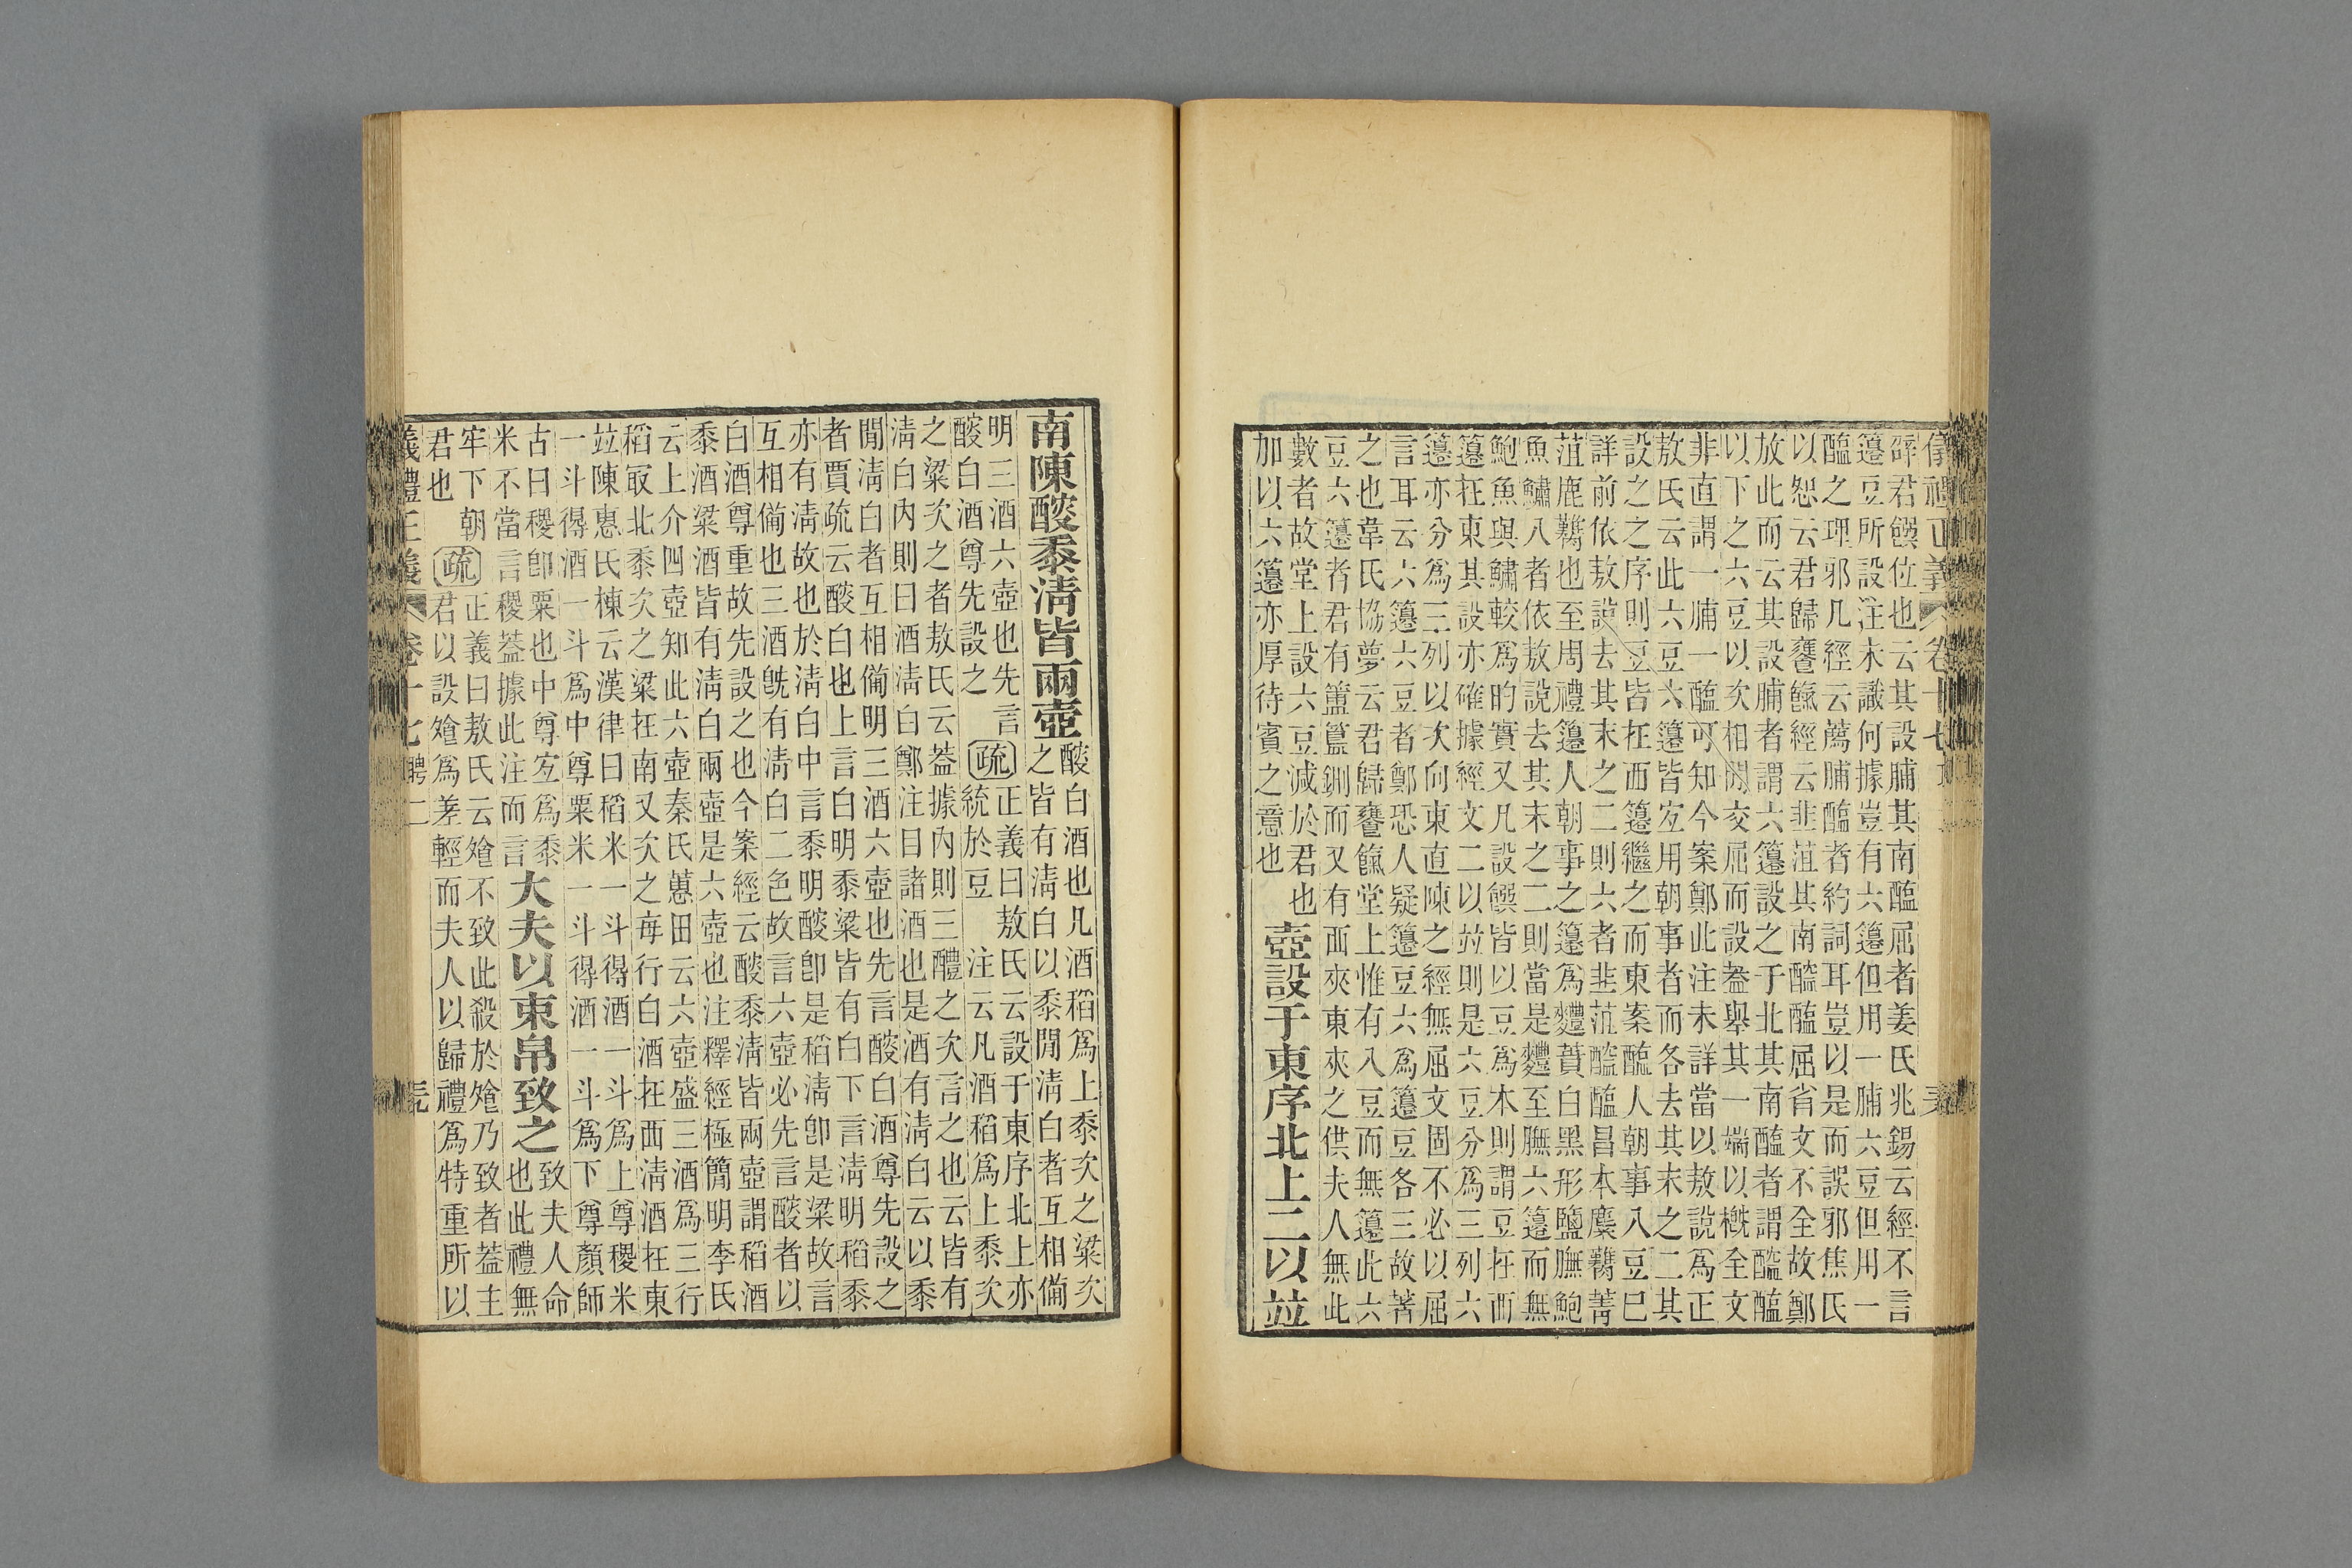 儀禮正義 卷十七
辟君饌位也云其設脯其南醢屈者姜氏兆錫云經不言
籩豆所設注未識何據豈有六籩但用一脯六豆但用一
醢之理邪凡經云薦脯醢者約詞耳豈以是而誤邪焦氏
以恕云君歸饔餼經云韭菹其南醓醢屈省文不全故鄭
放此而云其設脯者謂六籩設之于北其南醢者謂醓醢
以下之六豆以次相閒交屈而設葢舉其一端以槪全文
非直謂一脯一醢可知今案鄭此注未詳當以敖說爲正
敖氏云此六豆六籩皆宐用朝事者而各去其末之二其
設之之序則豆皆在西籩繼之而東案醢人朝事八豆已
詳前依敖說去其末之二則六者韭菹醓醢昌本麋臡菁
菹鹿臡也至周禮籩人朝事之籩爲麷蕡白黑形鹽膴鮑
魚鱐八者依敖說去其末之二則當是麷至膴六籩而無
鮑魚與鱐較爲旳實又凡設饌皆以豆爲本則謂豆在西
籩在東其設亦確據經文二以竝則是六豆分爲三列六
籩亦分爲三列以次向東直陳之經無屈文固不必以屈
言耳云六籩六豆者鄭恐人疑籩豆六爲籩豆各三故著
之也韋氏協夢云君歸饔餼堂上惟有八豆而無籩此六
豆六籩者君有簠簋鉶而又有西夾東夾之供夫人無此
數者故堂上設六豆減於君也
加以六籩亦厚待賓之意也 壺設于東序北上二以竝
南陳醙黍淸皆兩壺
醙白酒也凡酒稻爲上黍次之粱次
之皆有淸白以黍閒淸白者互相備
明三酒六壺也先言
醙白酒尊先設之
疏
正義曰敖氏云設于東序北上亦
統於豆 注云凡酒稻爲上黍次
之粱次之者敖氏云葢據內則三醴之次言之也云皆有
淸白內則曰酒淸白鄭注曰諸酒也是酒有淸白云以黍
閒淸白者互相備明三酒六壺也先言醙白酒尊先設之
者賈疏云醙白也上言白明黍粱皆有白下言淸明稻黍
亦有淸故也於淸白中言黍明醙卽是稻淸卽是粱故言
互相備也三酒旣有淸白二色故言六壺必先言醙者以
白酒尊重故先設之也今案經云醙黍淸皆兩壺謂稻酒
黍酒粱酒皆有淸白兩壺是六壺也注釋經極簡明李氏
云上介四壺知此六壺秦氏蕙田云六壺盛三酒爲三行
稻㝡北黍次之粱在南又次之每行白酒在西淸酒在東
竝陳惠氏棟云漢律曰稻米一斗得酒一斗爲上尊稷米
一斗得酒一斗爲中尊粟米一斗得酒一斗爲下尊顏師
古曰稷卽粟也中尊宐爲黍
米不當言稷葢據此注而言
大夫以束帛致之
致夫人命
也此禮無
牢下朝
君也
疏
正義曰敖氏云飧不致此殺於飧乃致者葢主
君以設飧爲差輕而夫人以歸禮爲特重所以
儀禮正義 卷十七 聘二